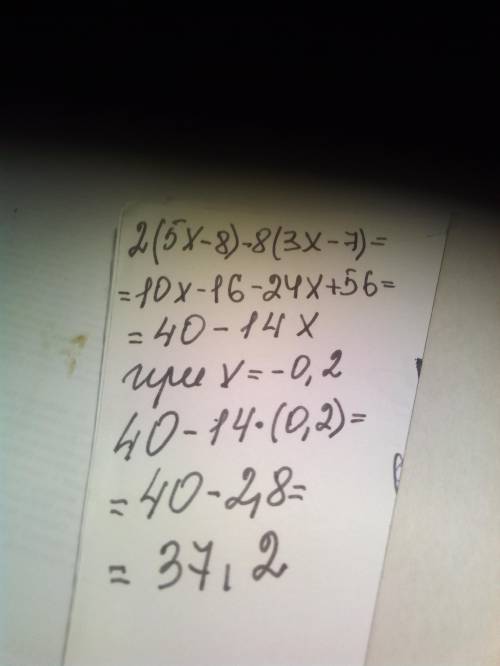 2(5x-8)-8(3x-7)=
=10x-16-24x+56=
=40-14x
при x=-0,2
40-14·(0,2)=
=40-2,8=
=37,2